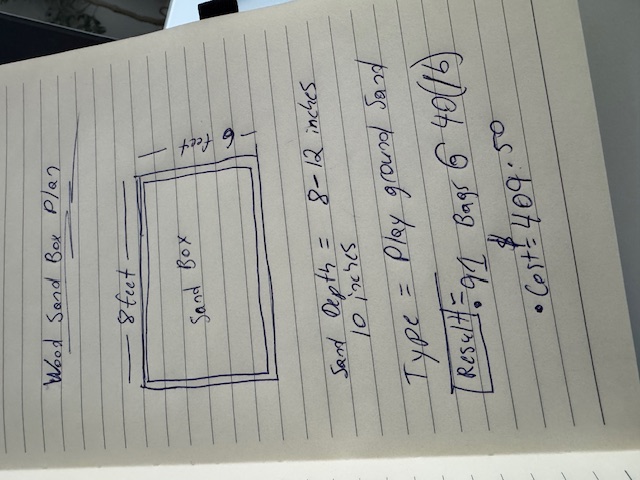 Wood Sand Box Plan
8 feet
6 feet
Sand Box
Sand Depth = 8-12 inches
10 inches
Type = Play ground Sand
Result =
• 91 Bags @ 40(lb)
• Cost = $409.50